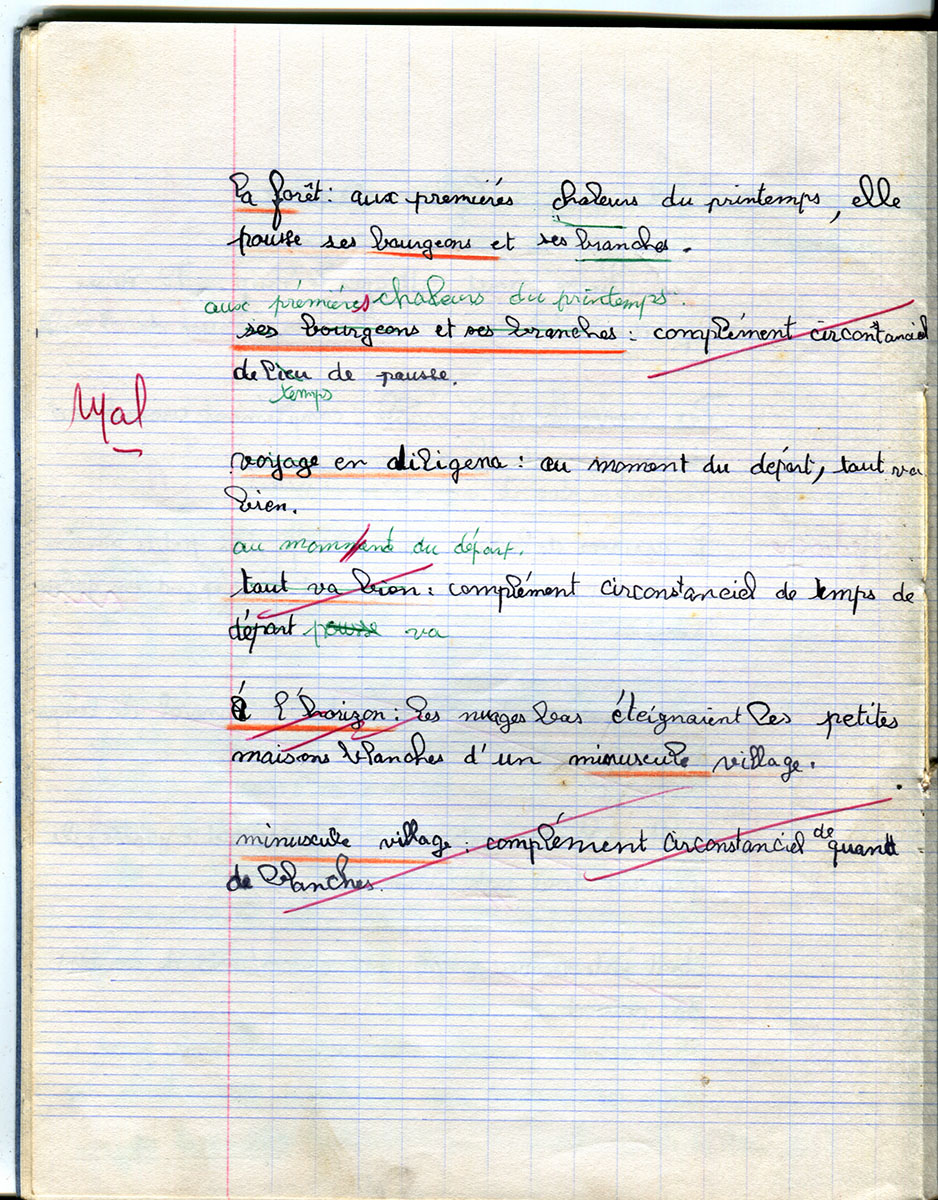 La forêt : aux premiéres chaleurs du printemps, elle
pousse ses bourgeons et ses branches.
aux prémiéres chaleurs du printemps.
ses bourgeons et ses branches : complément circontanciel
de lieu de pousse.
temps
Mal
voyage en diligena : au moment du depárt, tout va
bien.
au momment du départ.
tout va bien : complément circonstanciel de temps de
départ pousse va
À l'horizon : les nuages bas éteignaient les petites
maisons blanches d'un minuscule village.
minuscule village : complément circonstanciel de quand
de blanches.